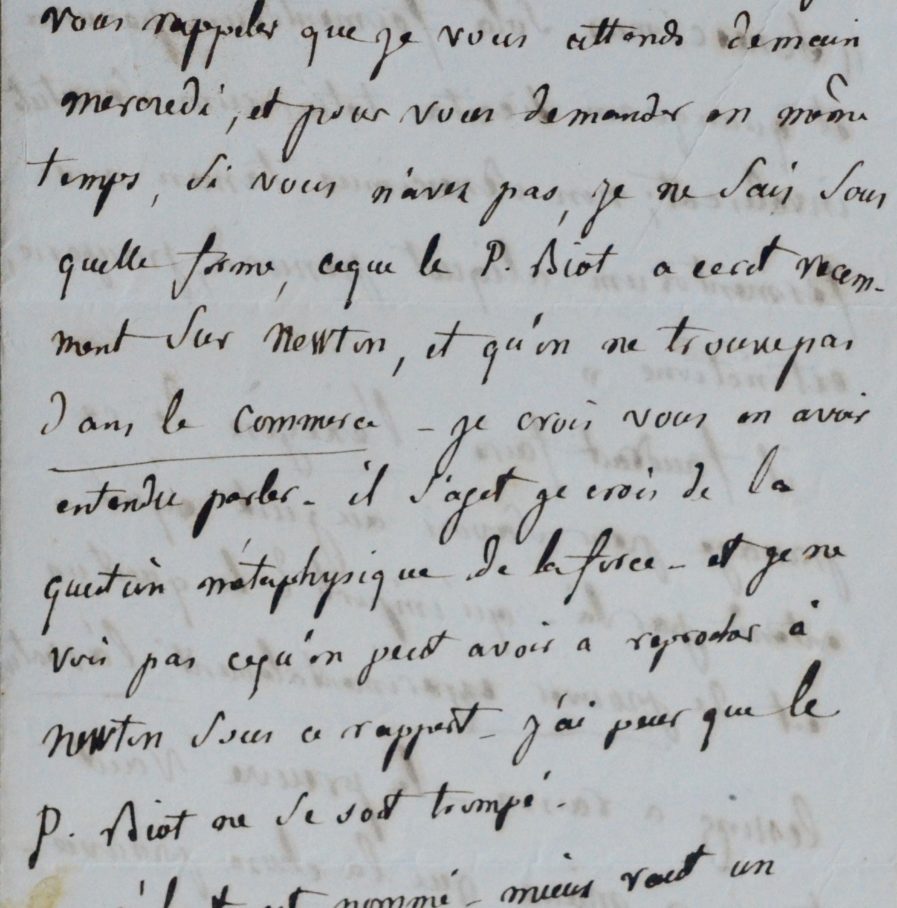 vous rappeler que je vous attends demain
mercredi, et pour vous demander en même
temps, si vous n'avez pas, je ne sais sous
quelle forme, ceque le P. Biot a ecrit recem-
ment sur Newton, et qu'on ne trouve pas
dans le commerce - je crois vous en avoir
entendu parler - il s'agit je crois de la
question métaphysique de la force - et je ne
vois pas cequ'on peut avoir a reprocher à
Newton sous ce rapport - j'ai peur que le
P. Biot ne se soit trompé.
est nommé - mieux vaut un